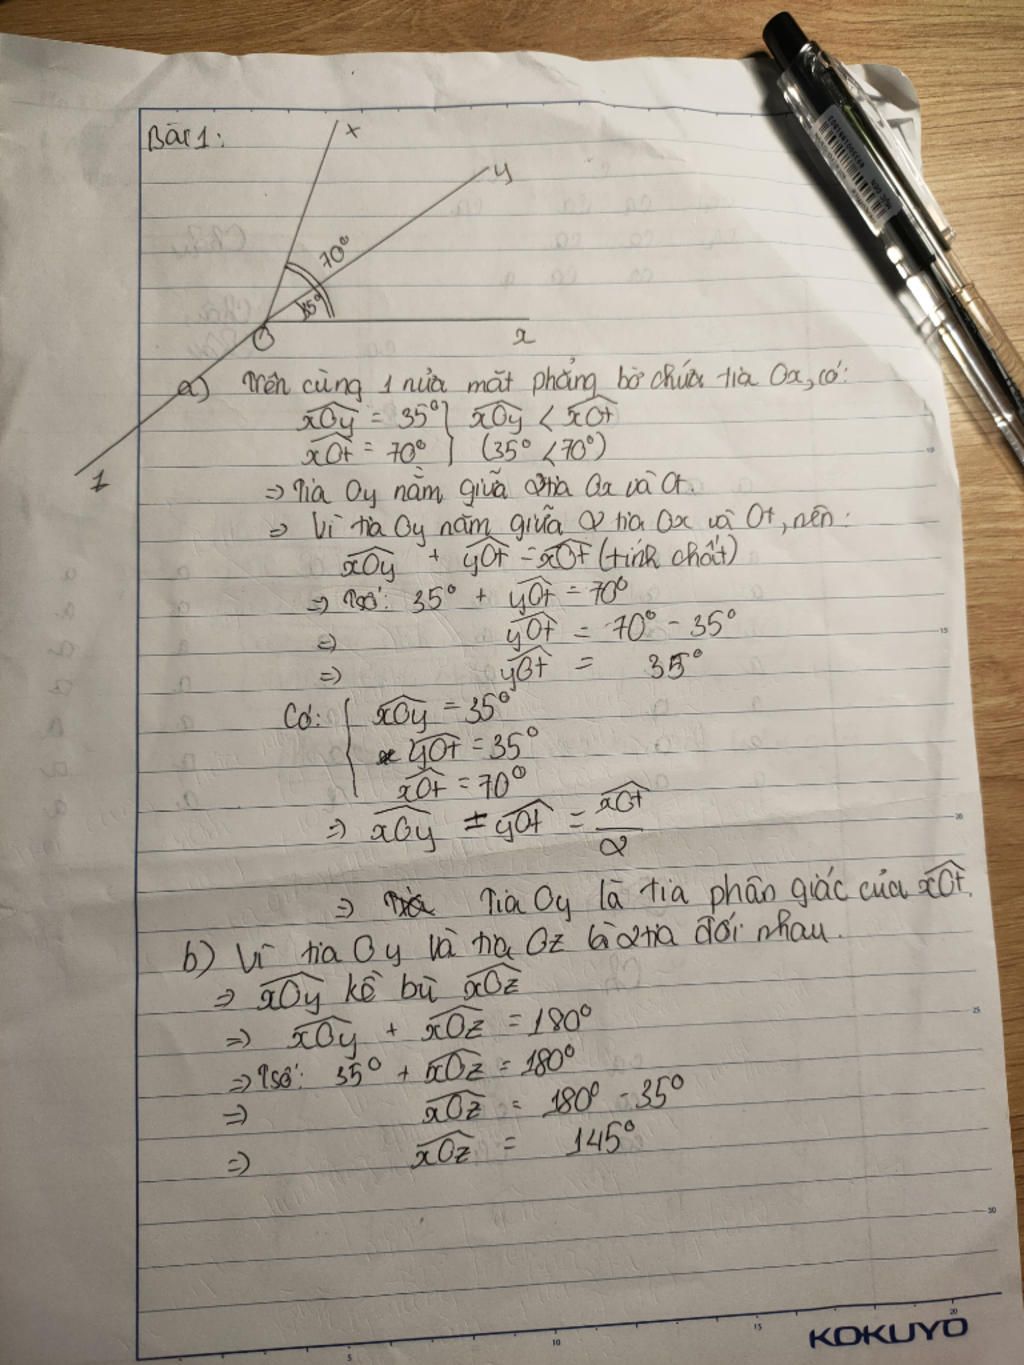 Bài 1:
t
y
70°
35°
O
x
z
a) Trên cùng 1 nửa mặt phẳng bờ chứa tia Ox, có:
xOy = 35° } xOy < xOt
xOt = 70° } (35° < 70°)
=> Tia Oy nằm giữa 2 tia Ox và Ot.
=> Vì tia Oy nằm giữa 2 tia Ox và Ot, nên:
xOy + yOt = xOt (tính chất)
=> Tsố: 35° + yOt = 70°
=> yOt = 70° - 35°
=> yOt = 35°
Có: { xOy = 35°
yOt = 35°
xOt = 70°
=> xOy = yOt = xOt/2
=> Tia Oy là tia phân giác của xOt.
b) Vì tia Oy và tia Oz là 2 tia đối nhau.
=> xOy kề bù xOz
=> xOy + xOz = 180°
=> Tsố: 35° + xOz = 180°
=> xOz = 180° - 35°
=> xOz = 145°
10
15
20
25
30
5
10
15
20
KOKUYO